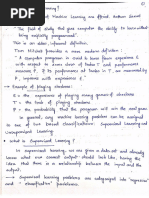 of Machine Learning are offered. Arthur Samuel
"The field of study that gives computer the ability to learn without
being explicitly programmed".
This is an older, informal definition.
Tom Mitchell provides a more modern definition:
"A computer program is said to learn from experience E with
some class of tasks T and performance measure P,
if its performance at tasks in T, as measured by P,
improves with experience E."
Example of playing checkers.
E = the experience of playing many games of checkers
T = the task of playing checkers.
P = the probability that the program will win the next game
In general, any machine learning problem can be assigned
to one of two broad classifications: Supervised learning and
Unsupervised Learning.
What is Supervised Learning?
In Supervised Learning, we are given a data set and already
know what our correct output should look like, having the
idea that there is a relationship between the input and
the output.
Supervised learning problems are categorized into "regression"
and "classification" problems.